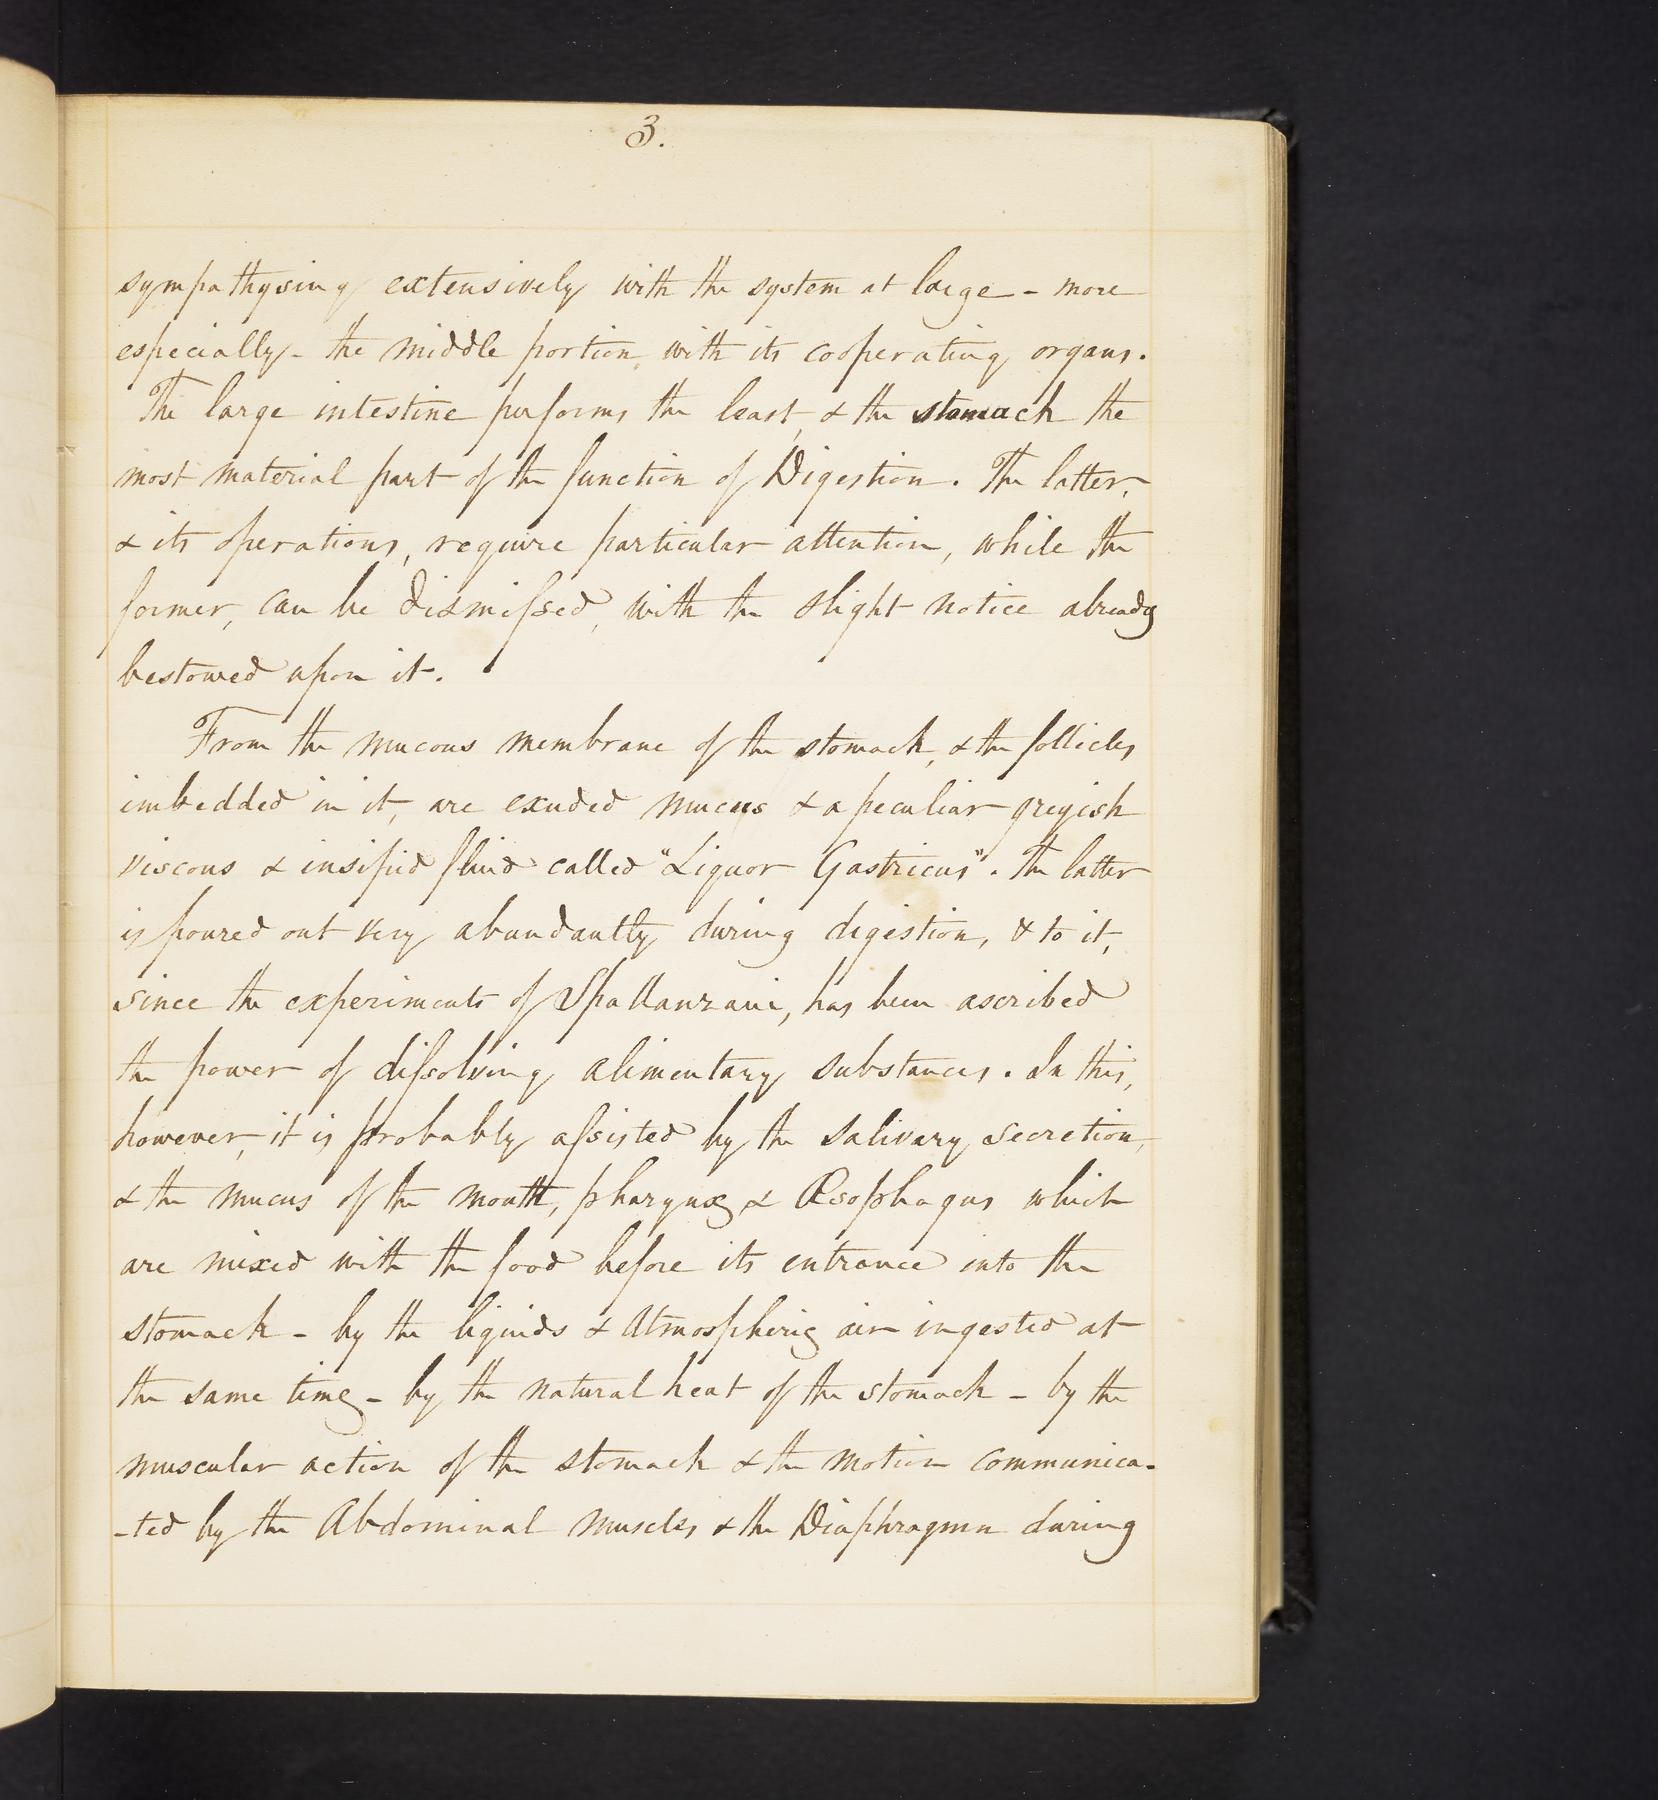 3.
sympathysing extensively with the system at large - more
especially - the middle portion, with its cooperating organs.
The large intestine performs the least, & the stomach the
most material part of the function of Digestion. The latter,
& its operations, require particular attention, while the
former, can be dismissed, with the slight notice already
bestowed upon it.
From the mucous membrane of the stomach, & the follicles
imbedded in it, are exuded mucus & a peculiar greyish
viscous & insipid fluid called "Liquor Gastricus". The latter
is poured out very abundantly during digestion, & to it,
since the experiments of Spallanzani, has been ascribed
the power of dissolving alimentary substances. In this,
however, it is probably assisted by the salivary secretion,
& the mucus of the mouth, pharynx & Œsophagus which
are mixed with the food before its entrance into the
stomach - by the liquids & Atmospheric air ingested at
the same time - by the natural heat of the stomach - by the
muscular action of the stomach & the motion communica-
-ted by the Abdominal muscles & the Diaphragm during